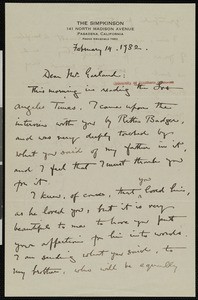 THE SIMPKINSON
141 NORTH MADISON AVENUE
PASADENA, CALIFORNIA
February 14, 1932.
Dear Mr. Garland:
This morning in reading the Los
Angeles Times, I came upon the
interview with you by Ritter Badger,
and was very deeply touched by
what you said of my father in it,
and I feel that I must thank you
for it.
you
I know, of course, that loved him,
as he loved you, but it is very
beautiful to me to have you put
your affection for him into words
I am sending what you said, to
my brother, who will be equally